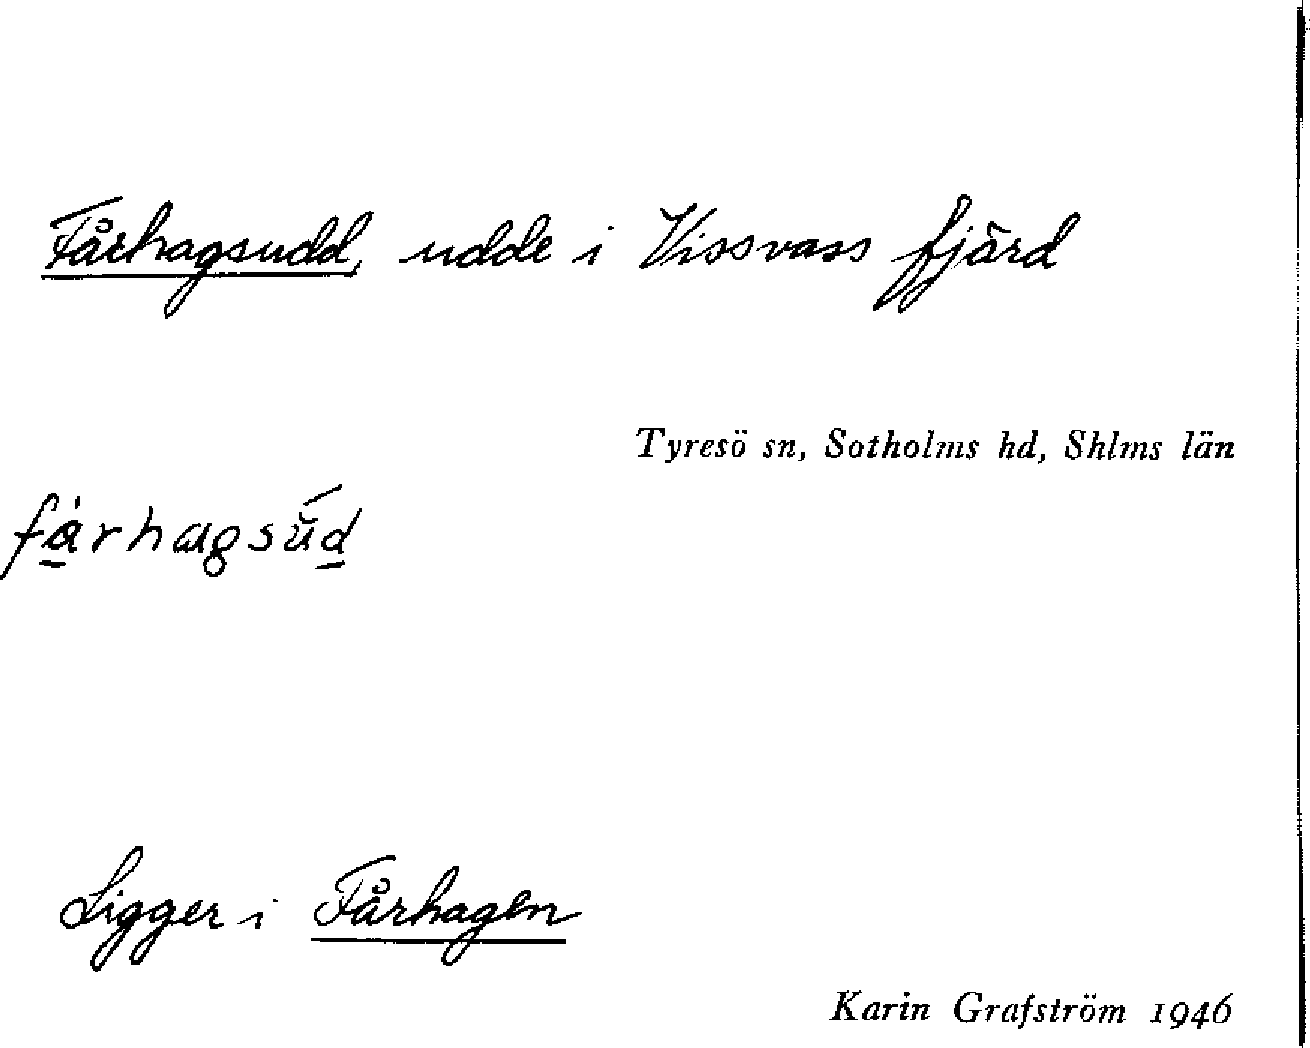 Fårhagsudd, udde i Vissvass fjärd
Tyresö sn, Sotholms hd, Shlms län
fårhagsùd
Ligger i Fårhagen
Karin Grafström 1946